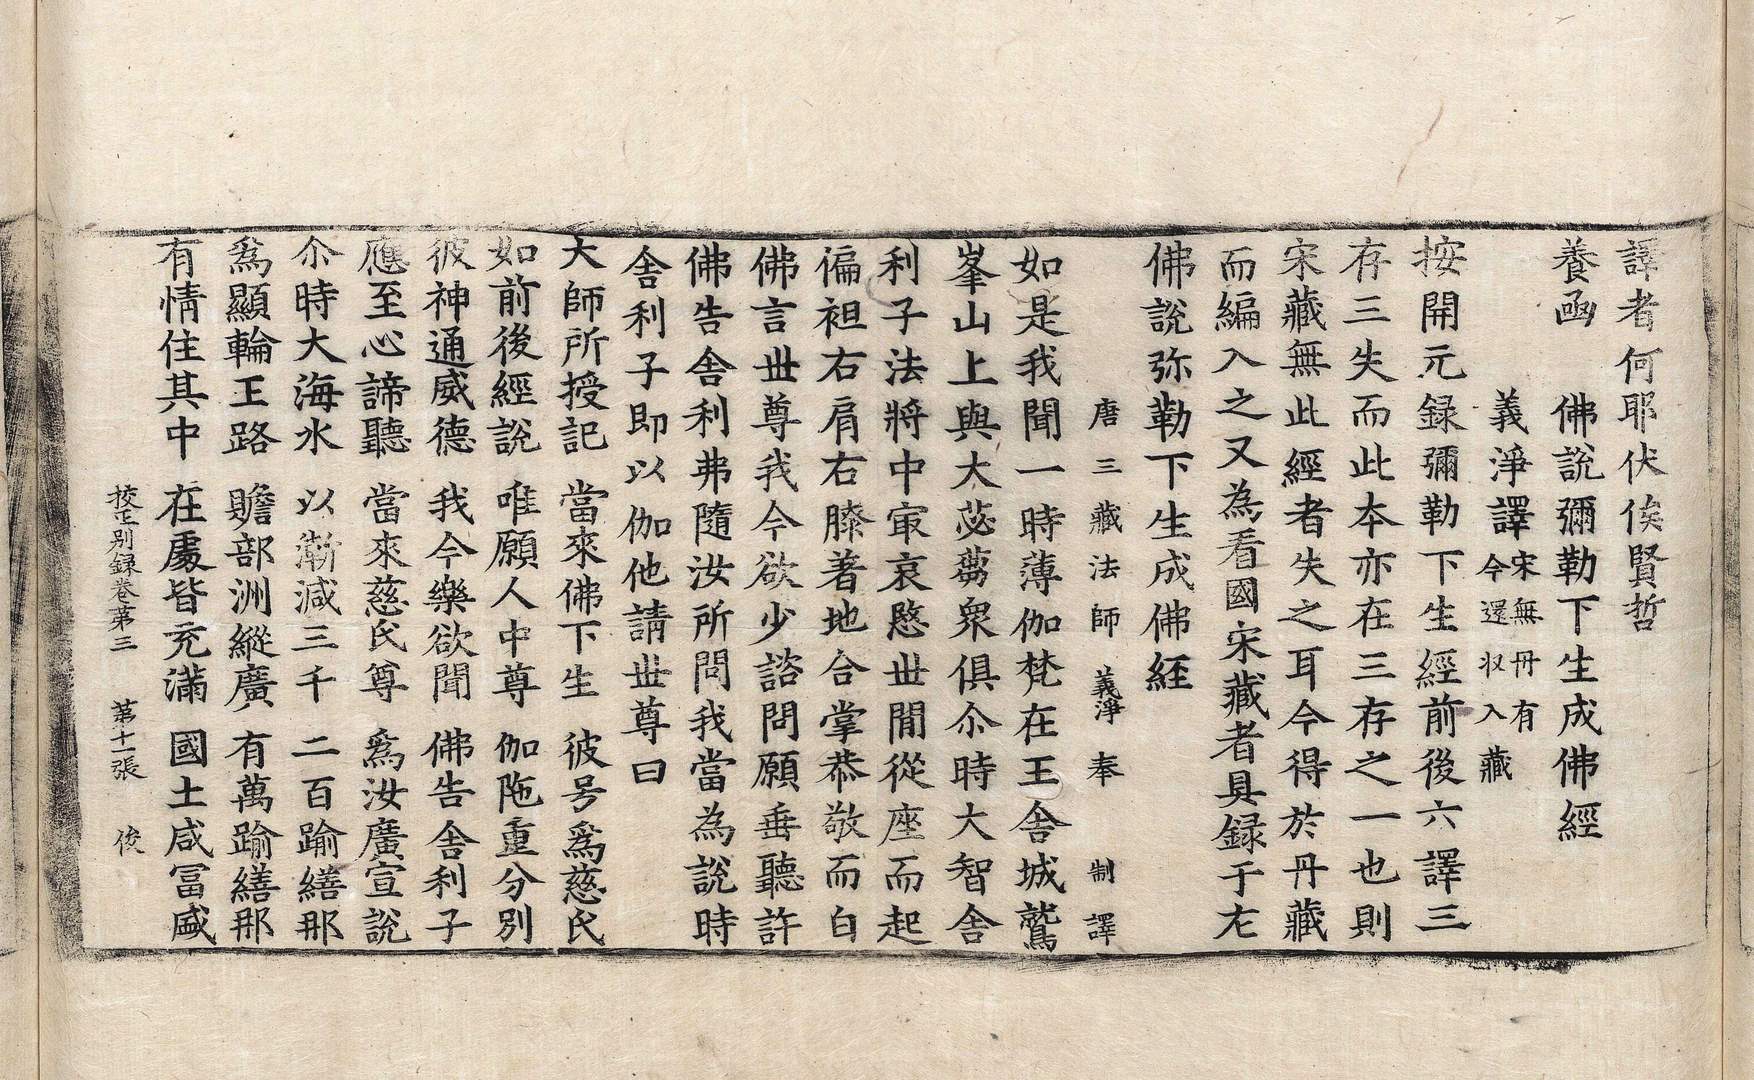 譯者何耶伏俟賢哲
養凾　佛說彌勒下生成佛經
義淨譯宋無丹有今還収入藏
按開元録彌勒下生經前後六譯三
存三失而此夲亦在三存之一也則
宋藏無此經者失之耳今得於丹藏
而編入之又為看國宋藏者具録于左
佛說弥勒下生成佛経
唐三藏法師義淨奉制譯
如是我聞一時薄伽梵在王舍城鷲
峯山上與大苾芻衆俱尒時大智舍
利子法將中㝡哀愍丗間從座而起
偏袒右肩右膝著地合掌恭敬而白
佛言丗尊我今欲少諮問願垂聽許
佛告舍利弗隨汝所問我當為說時
舍利子即以伽他請丗尊曰
大師所授記　當來佛下生　彼号爲慈氏
如前後經說　唯願人中尊　伽陁重分別
彼神通威德　我今樂欲聞　佛告舍利子
應至心諦聽　當來慈氏尊　爲汝廣宣說
尒時大海水　以漸減三千　二百踰繕那
爲顯輪王路　贍部洲縱廣　有萬踰繕那
有情住其中　在處皆充滿　國土咸冨盛
挍正別録卷苐三　苐十一張　俊